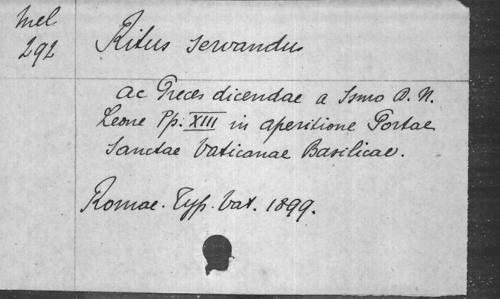 Mel.
292
Ritus servandus
ac Preces dicendae a Ssmo D. N.
Leone Pp. XIII in aperitione Portae
Sanctae Vaticanae Basilicae.
Romae. Typ. Vat. 1899.